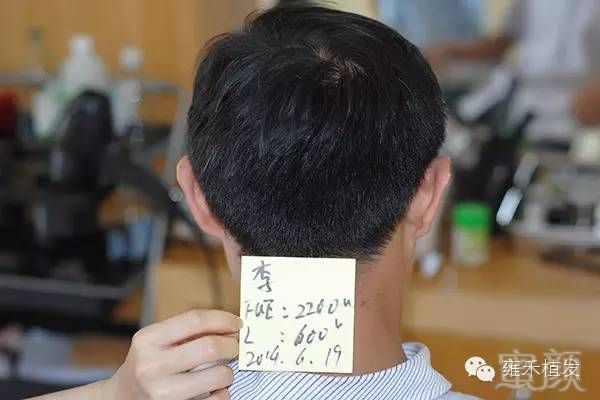 李
FUE：2200u
L ：600u
2014. 6. 19
雍禾植发
蜜颜